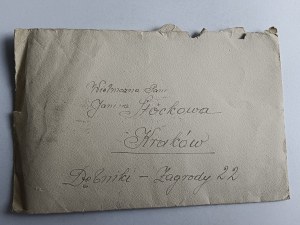 Wielmożna Pani
Janina Głóckowa
Kraków
Dębniki - Zagrody 22